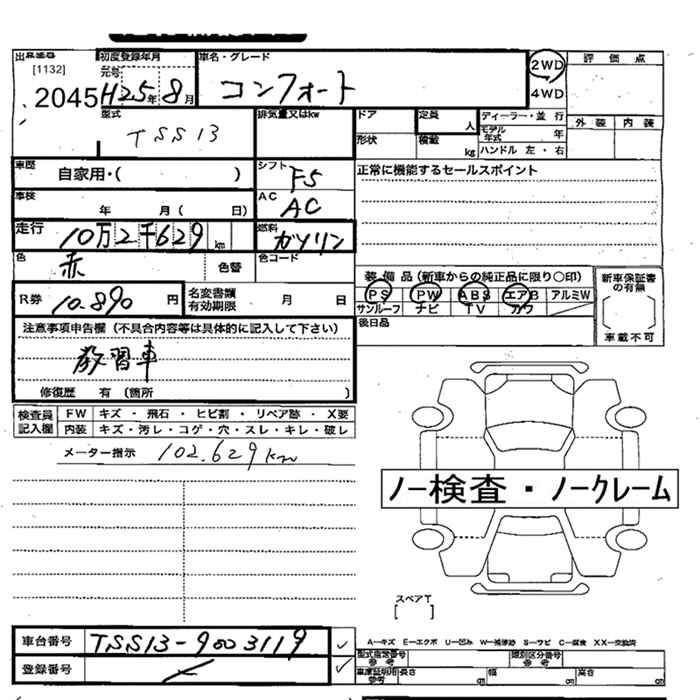 出品番号 初度登録年月 車名・グレード 2WD 評価点
[1132] 元号
2045 H25年8月 コンフォート 4WD
型式 排気量又はkw ドア 定員 人 ディーラー・並行 外装 内装
TSS13 モデル年式 年
形状 積載 kg ハンドル 左・右
車歴 自家用・( ) シフト F5 正常に機能するセールスポイント
車検 年 月( 日) AC AC
走行 10万2千629km 燃料 ガソリン
色 赤 色替 色コード
装備品(新車からの純正品に限り○印) 新車保証書の有無
R券 10.890円 名変書類有効期限 月 日 PS PW ABS エアB アルミW
サンルーフ ナビ TV カワ
車載不可
注意事項申告欄(不具合内容等は具体的に記入して下さい) 後日品
教習車
修復歴 有(箇所 )
検査員記入欄 FW キズ・飛石・ヒビ割・リペア跡・X要
内装 キズ・汚レ・コゲ・穴・スレ・キレ・破レ
メーター指示 102.629km
ノー検査・ノークレーム
スペアT
[ ]
車台番号 TSS13-9003119
A―キズ E―エクボ U―凹み W―補修跡 S―サビ C―腐食 XX―交換済
登録番号
型式指定番号 参考 類別区分番号 参考
車庫証明用参考 長さ cm 幅 cm 高さ cm